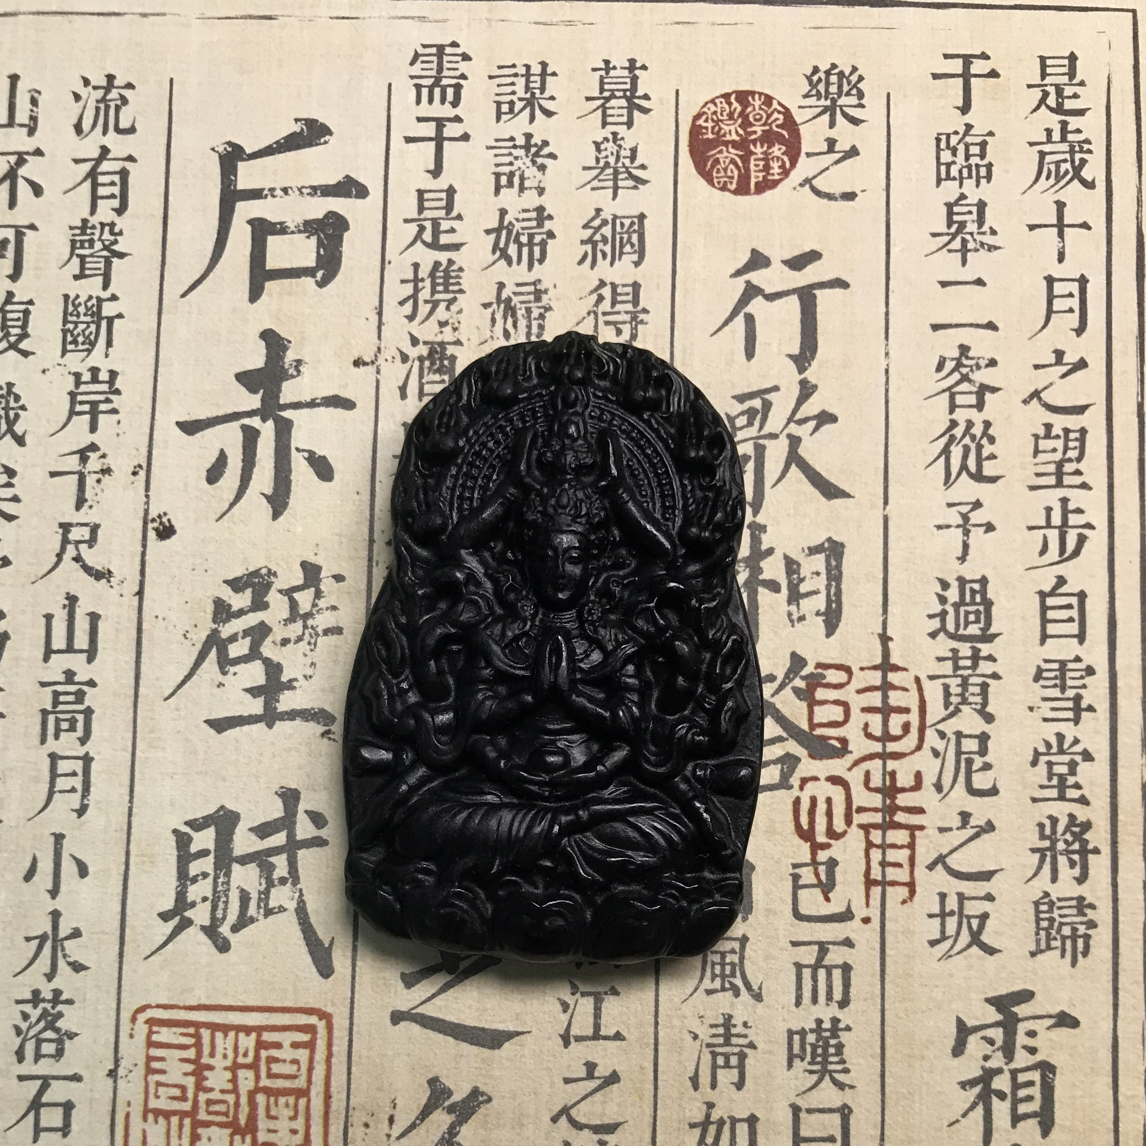 是歲十月之望步自雪堂將歸
于臨皋二客從予過黃泥之坂
霜
樂之
乾隆鑑賞
行歌相答
已而嘆曰
風清如
暮舉網得
江之
謀諸婦婦
需于是携酒
之久
后赤壁賦
流有聲斷岸千尺山高月小水落石
山不可